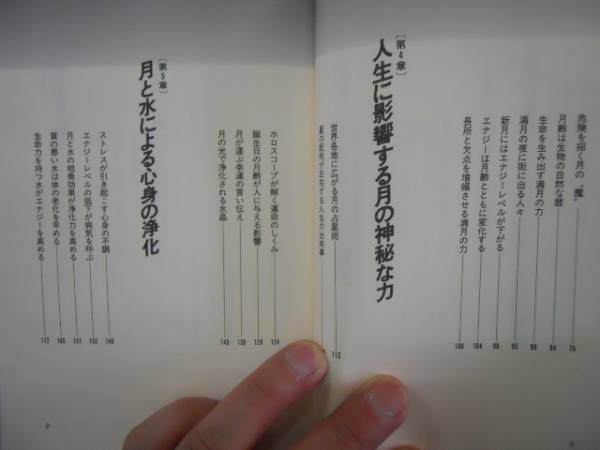 危険を招く月の〝魔〟 76
月齢は生物の自然な暦 84
生命を生み出す満月の力
満月の夜に街に出る人々 95
新月にはエナジーレベルが下がる 99
エナジーは月齢とともに変化する 104
長所と欠点を増幅させる満月の力 108
［第4章］
人生に影響する月の神秘な力
世界各地に広がる月の占星術 112
星の配列が左右する人生の出来事
ホロスコープが解く運命のしくみ 124
誕生日の月齢が人に与える影響
月が運ぶ幸運の言い伝え 139
月の光で浄化される水晶 143
［第5章］
月と水による心身の浄化
ストレスが引き起こす心身の不調 148
エナジーレベルの低下が病気を呼ぶ 152
月と水の相乗効果が浄化力を高める
質の悪い水は体の老化を早める 165
生命力を持つ水がエナジーを高める 172